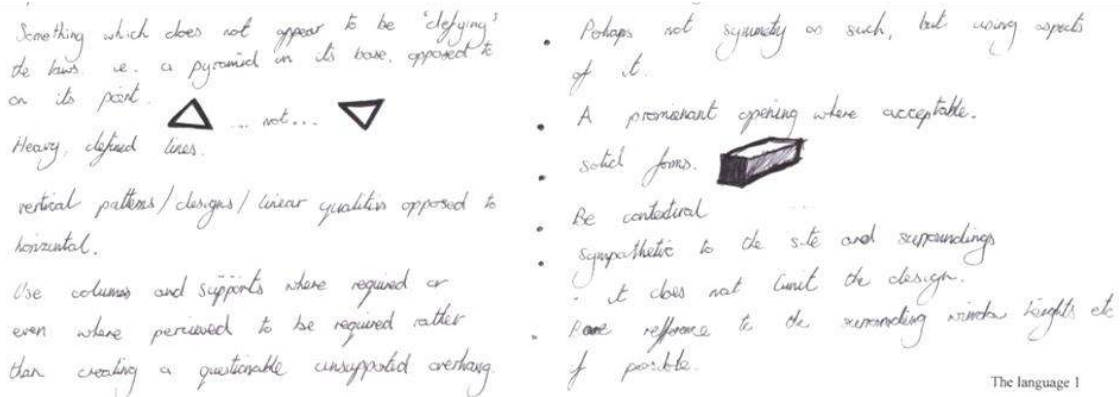 Something which does not appear to be 'defying'
the laws. i.e. a pyramid on its base, opposed to
on its point.
... not ...
Heavy, defined lines.
vertical patterns/designs/linear qualities opposed to
horizontal.
Use columns and supports where required or
even where percieved to be required rather
than creating a questionable unsupported overhang.
Perhaps not symmetry as such, but using aspects
of it.
A promienant opening where acceptable.
solid forms.
Be contextural
sympathetic to the site and surroundings
it does not limit the design.
refference to the surrounding window heights etc
if possible.
The language 1